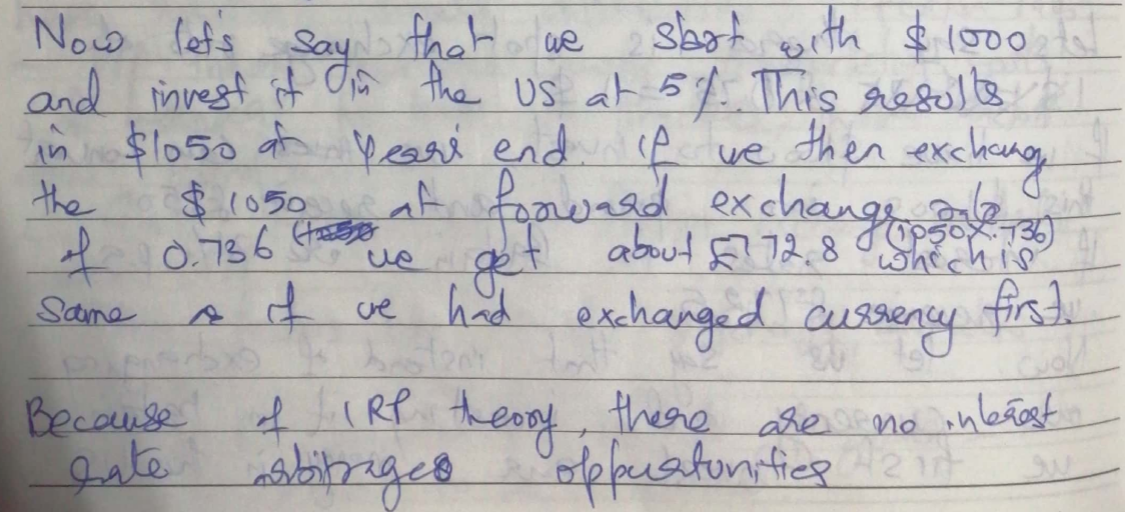 Now let's say that we start with $1000
and invest it in the US at 5%. This results
in $1050 at years end. If we then exchang
the $1050 at forward exchange rate
of 0.736 we get about £772.8 (1050×.736) which is
same as if we had exchanged currency first.
Because of IRP theory, there are no interest
rate arbitrages oppurtunities